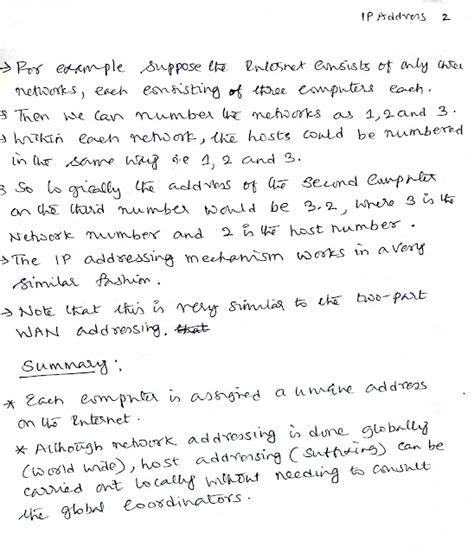 IP Address 2
→ For example suppose the Internet consists of only three
networks, each consisting of three computers each.
→ Then we can number the networks as 1, 2 and 3.
→ Within each network, the hosts could be numbered
in the same way i.e 1, 2 and 3.
→ So logically the address of the second computer
on the third number would be 3.2, where 3 is the
Network number and 2 is the host number.
→ The IP addressing mechanism works in a very
similar fashion.
→ Note that this is very similar to the two-part
WAN addressing. that
Summary:
* Each computer is assigned a unique address
on the Internet.
* Although network addressing is done globally
(world wide), host addressing (suffixing) can be
carried out locally without needing to consult
the global coordinators.